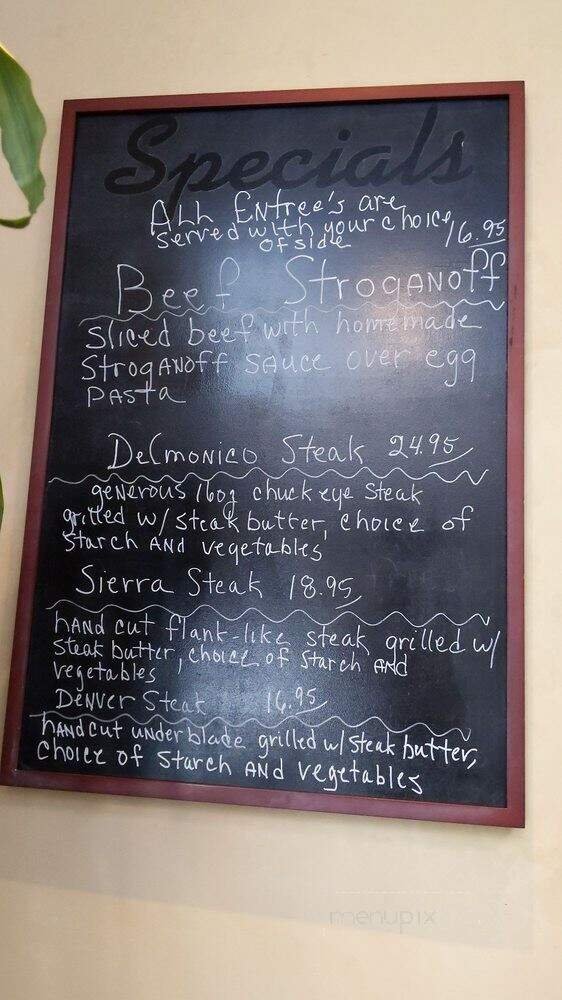 Specials
All Entree's are
served with your choice 16.95
of side
Beef Stroganoff
sliced beef with homemade
Stroganoff sauce over egg
pasta
Delmonico Steak 24.95
generous 16oz chuck eye steak
grilled w/ steak butter, choice of
starch and vegetables
Sierra Steak 18.95
hand cut flank-like steak grilled w/
steak butter, choice of starch and
vegetables
Denver Steak 16.95
handcut under blade grilled w/ steak butter,
choice of starch and vegetables
menupix